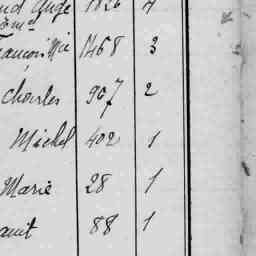 Ange 1826 4
François Mie 1468 3
Charles 907 2
Michel 402 1
Marie 28 1
88 1